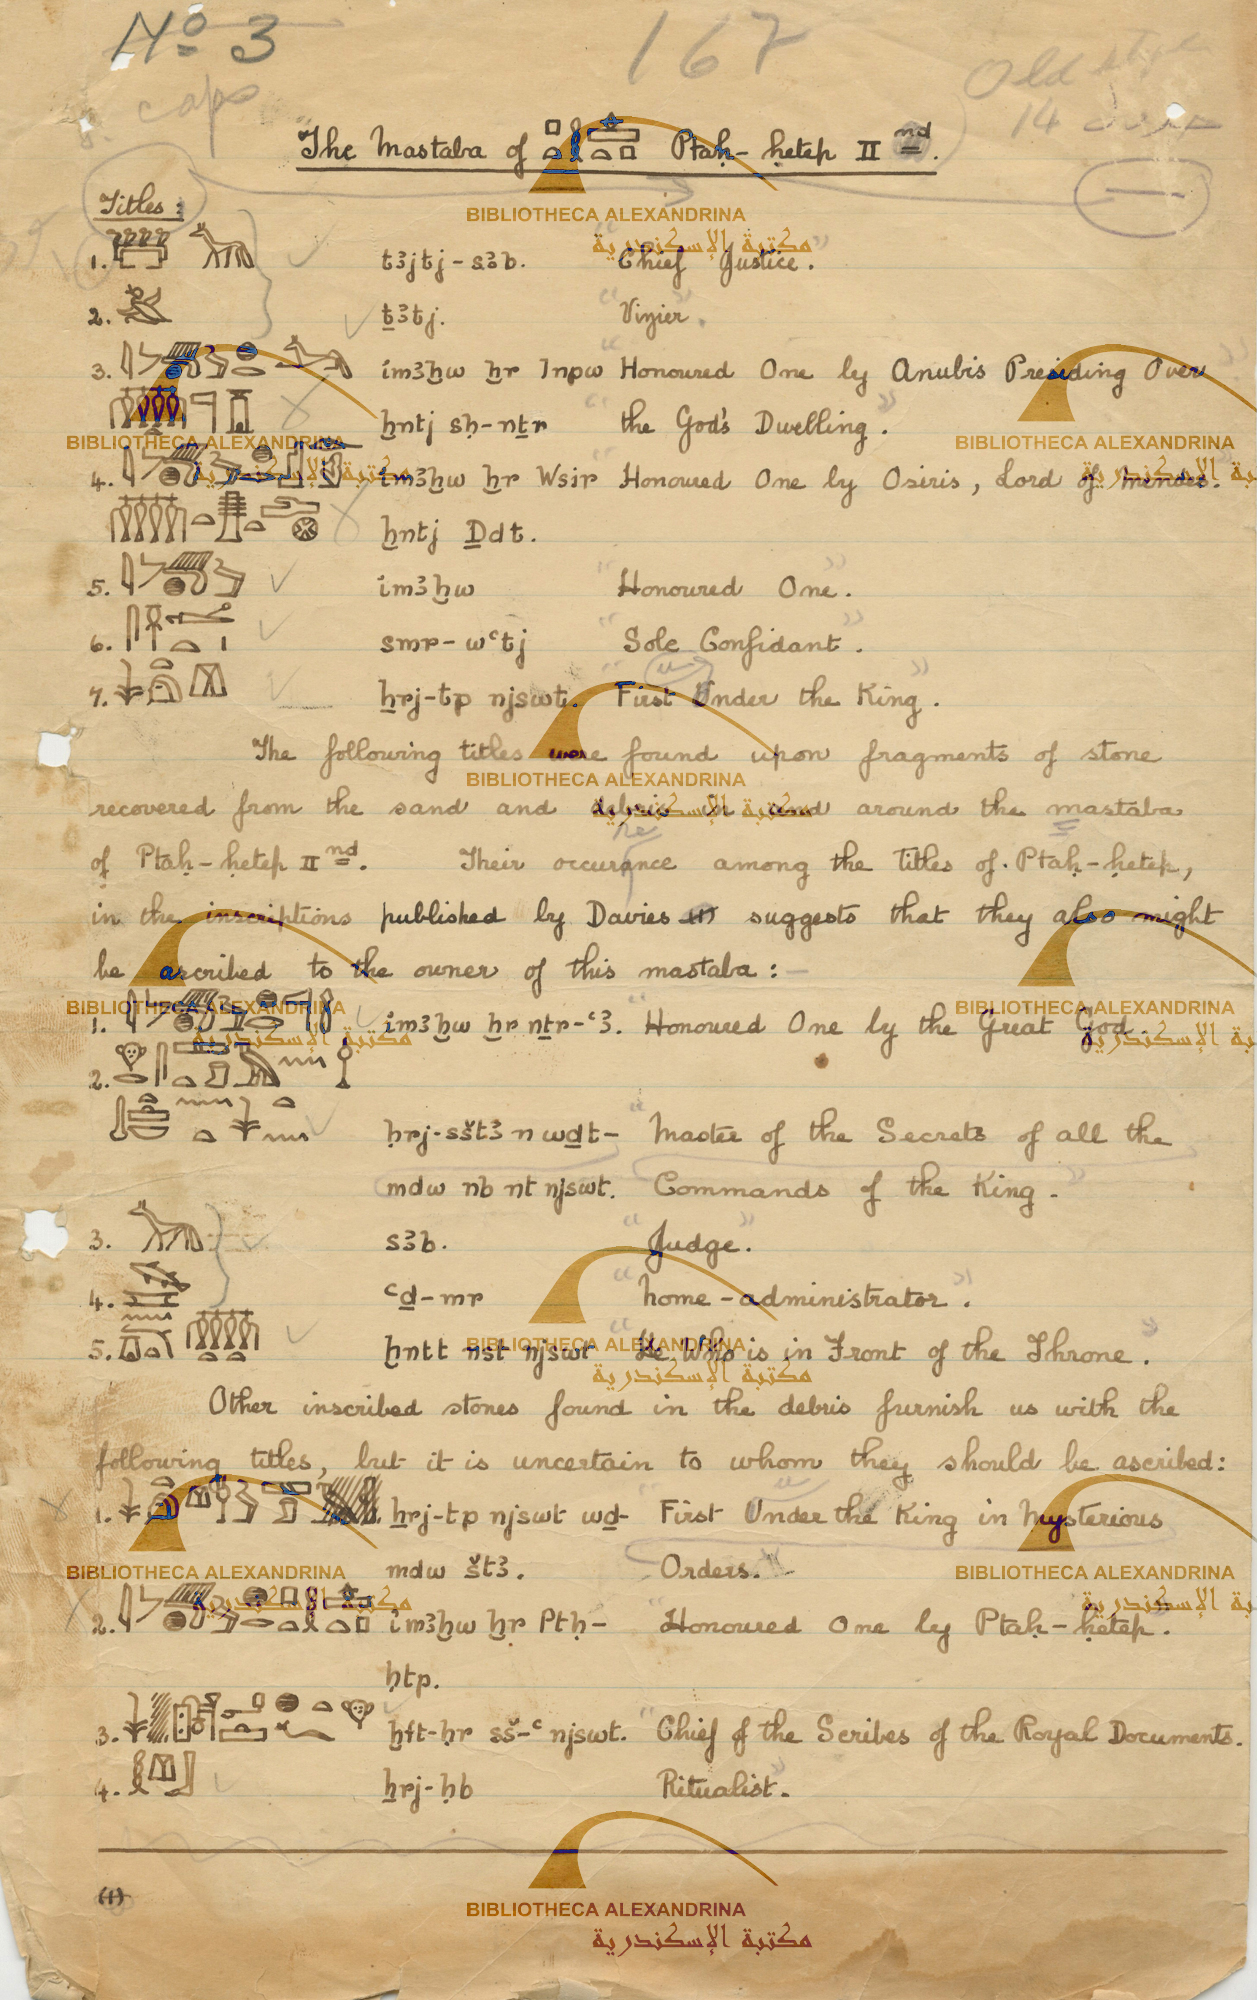 No 3
167
Old style
caps
14
The Mastaba of 𓊪𓏏𓎛𓊵𓏏𓊪 Ptaḥ-ḥetep II nd.
Titles:
1. tꜣjtj-sꜣb. "Chief Justice."
2. ṯꜣtj. "Vizier."
3. imꜣḫw ḫr Inpw "Honoured One by Anubis Presiding Over
ḫntj sḥ-nṯr the God's Dwelling."
4. imꜣḫw ḫr Wsir "Honoured One by Osiris, Lord of Mendes.
ḫntj Ḏdt.
5. imꜣḫw "Honoured One."
6. smr-wꜥtj "Sole Confidant."
7. ẖrj-tp njswt. "First Under the King."
The following titles were found upon fragments of stone
recovered from the sand and debris in and around the mastaba
of Ptaḥ-ḥetep II nd. Their occurance among the Titles of Ptaḥ-ḥetep,
in the inscriptions published by Davies (1) suggests that they also might
be ascribed to the owner of this mastaba:-
1. imꜣḫw ḫr nṯr-ꜥꜣ. "Honoured One by the Great God
2.
ḥrj-sštꜣ n wḏt- "Master of the Secrets of all the
mdw nb nt njswt. Commands of the King."
3. sꜣb. "Judge."
4. ꜥḏ-mr "home-administrator."
5. ḫntt nst njswt "He Who is in Front of the Throne."
Other inscribed stones found in the debris furnish us with the
following titles, but it is uncertain to whom they should be ascribed:
1. ẖrj-tp njswt wḏ- First Under the King in Mysterious
mdw štꜣ. Orders."
2. imꜣḫw ḫr Ptḥ- "Honoured One by Ptaḥ-ḥetep."
ḥtp.
3. ḫft-ḥr sš-ꜥ njswt. "Chief of the Scribes of the Royal Documents.
4. ẖrj-ḥb Ritualist."
(1)
BIBLIOTHECA ALEXANDRINA
مكتبة الإسكندرية